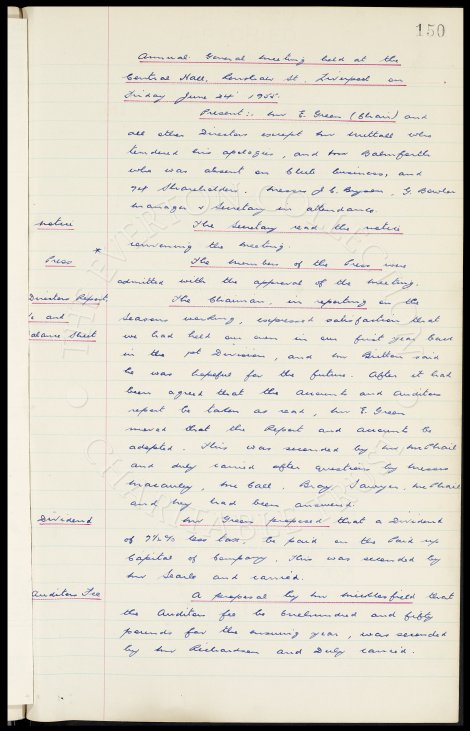 150
Annual General Meeting held at the
Central Hall, Renshaw St. Liverpool on
Friday June 24th 1955
Present:- Mr E. Green (Chair) and
all other Directors except Mr Nuttall who
tendered his apologies, and Mr Balmforth
who was absent on Club business, and
74 Shareholders. Messrs J C. Bryson, G. Bowler
Manager & Secretary in attendance.
Notice The Secretary read the notice
convening the meeting.
Press * The members of the Press were
admitted with the approval of the meeting.
Directors Report The Chairman, in reporting on the
a/c and Seasons working, expressed satisfaction that
Balance Sheet we had held our own in our first year back
in the 1st Division, and Mr Britton said
he was hopeful for the future. After it had
been agreed that the Accounts and Auditors
report be taken as read, Mr E. Green
moved that the Report and Accounts be
adopted. This was seconded by Mr McPhail
and duly carried after questions by Messrs
Macauley, McCall, Bray, Sawyer, McPhail
and had been answered.
Dividend Mr Green proposed that a Dividend
of 7½% less tax be paid on the Paid up
Capital of Company. This was seconded by
Mr Searle and carried.
Auditors Fee A proposal by Mr Micklesfield that
the Auditors fee be One hundred and fifty
pounds for the ensuing year, was seconded
by Mr Richardson and Duly carried.
THE EVERTON COLLECTION
© CHARITABLE TRUST